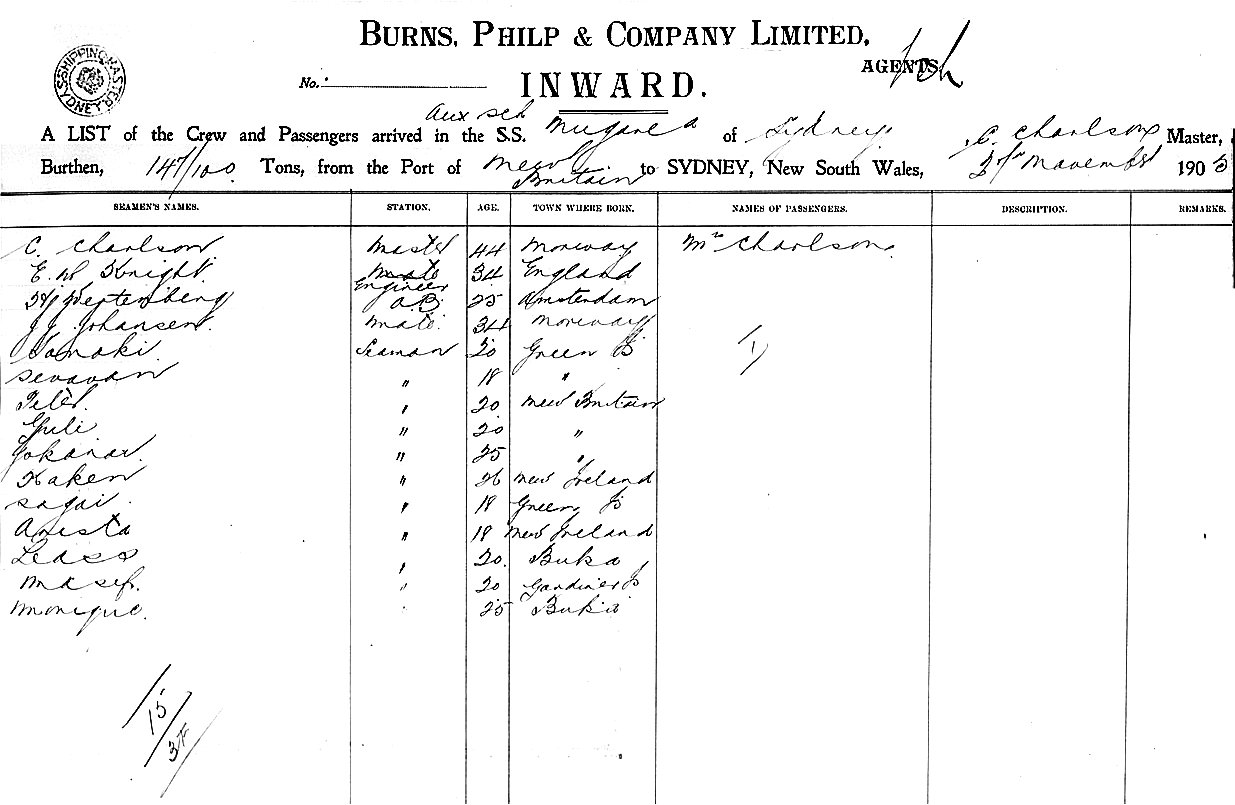 BURNS, PHILP & COMPANY LIMITED,
AGENTS
SHIPPING MASTER SYDNEY
No.
INWARD.
Aux sch
A LIST of the Crew and Passengers arrived in the S.S. Mugarea of Sydney, C. Charlson Master,
Burthen, 147/100 Tons, from the Port of New Britain to SYDNEY, New South Wales, November 190
SEAMEN'S NAMES. STATION. AGE. TOWN WHERE BORN. NAMES OF PASSENGERS. DESCRIPTION. REMARKS.
C. Charlson Master 44 Norway Mrs Charlson.
E. W. Knight Mate Engineer 34 England
Westenberg A.B. 25 Amsterdam
J.J. Johansen. Mate 34 Norway
Tanaki Seaman 20 Green Is 1
Sevavan " 18 "
Peter " 20 New Britain
Guli " 20 "
Tokanar. " 25 "
Kaken " 26 New Ireland
Sagai " 18 Green Is
Arista " 18 New Ireland
Leass " 20 Buka
Masef. " 20 Gardiner Is
Monique. " 25 Buka
15
3